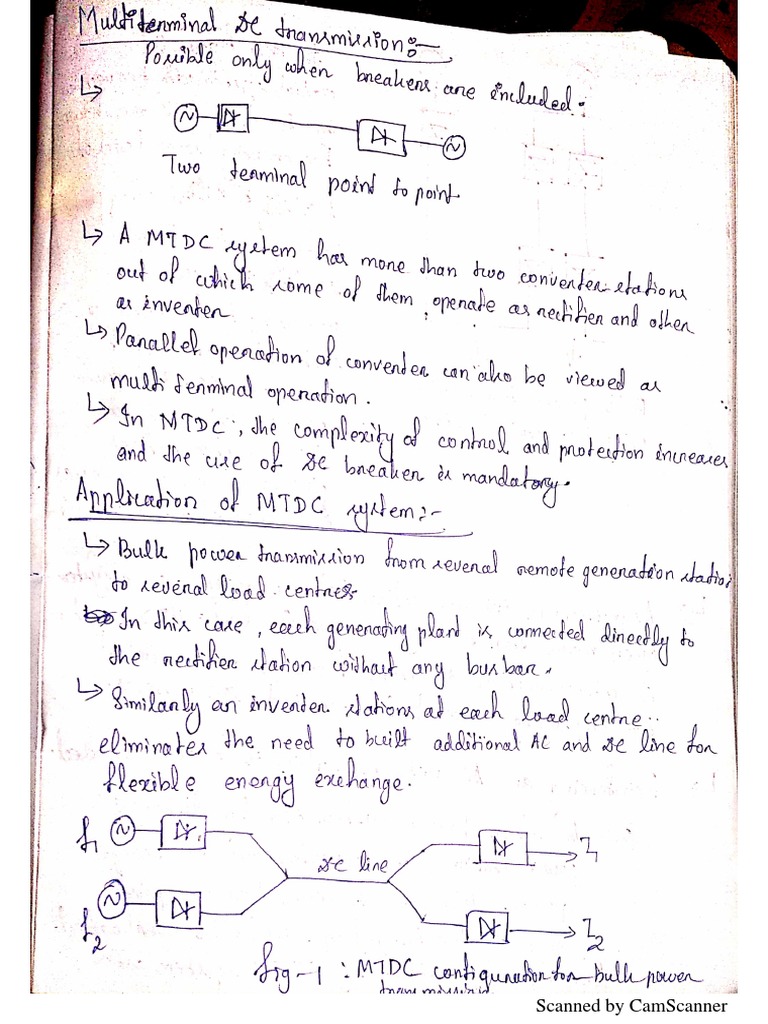 Multiterminal DC transmission:-
Possible only when breakers are included.
Two terminal point to point
↳ A MTDC system has more than two converter stations
out of which some of them operate as rectifier and other
as inverter
↳ Parallel operation of converter can also be viewed as
multi terminal operation.
↳ In MTDC, the complexity of control and protection increases
and the use of DC breaker is mandatory.
Application of MTDC system:-
↳ Bulk power transmission from several remote generation station
to several load centres
In this case, each generating plant is connected directly to
the rectifier station without any bus bar.
↳ Similarly an inverter stations at each load centre..
eliminates the need to built additional AC and DC line for
flexible energy exchange.
f1
DC line
I1
f2
I2
fig-1 : MTDC configuration for bulk power
transmission
Scanned by CamScanner